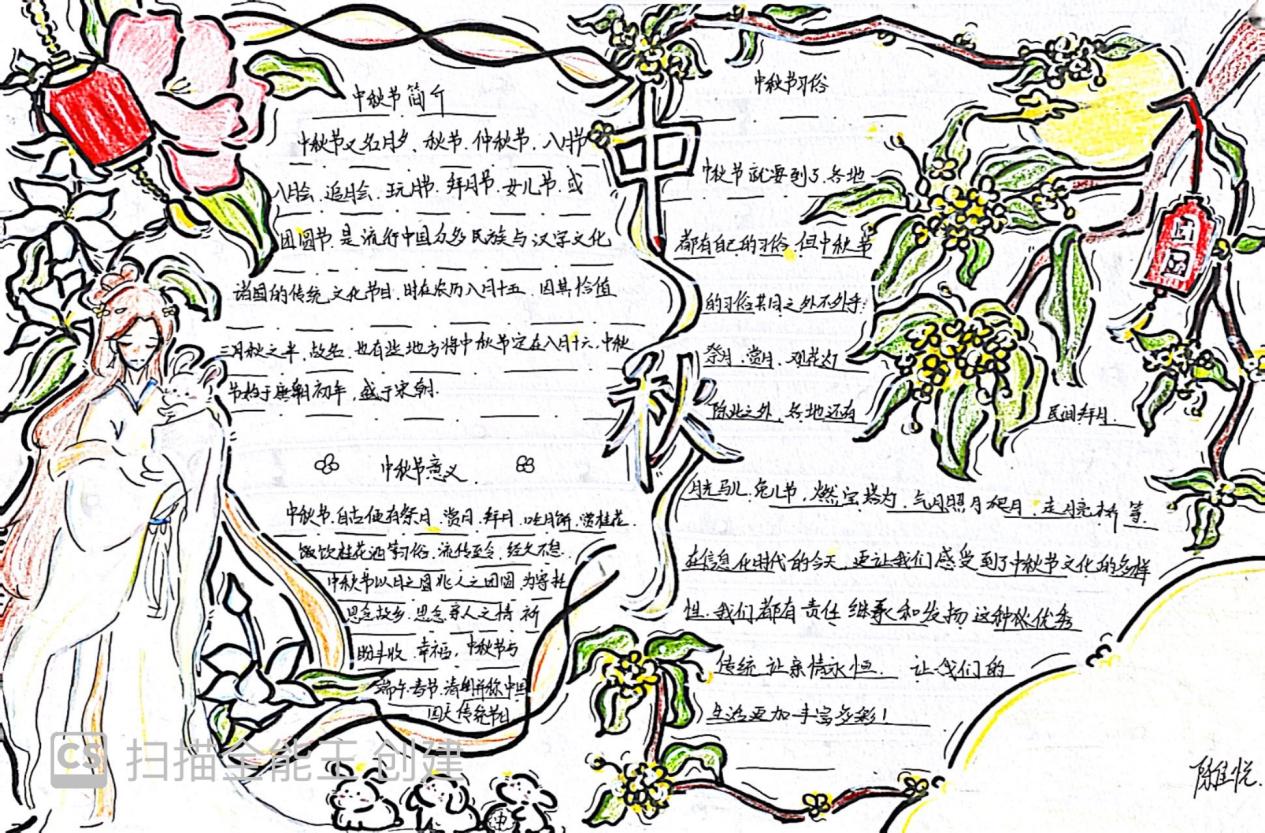 中秋节简介
中秋节又名月夕、秋节、仲秋节、八月节
八月会、追月会、玩月节、拜月节、女儿节、或
团圆节、是流行中国众多民族与汉字文化
诸国的传统文化节日,时在农历八月十五,因其恰值
三秋之半,故名,也有些地方将中秋节定在八月十六,中秋
节始于唐朝初年,盛于宋朝.
中秋节意义
中秋节,自古便有祭月、赏月、拜月、吃月饼、赏桂花、
饭饮桂花酒等习俗,流传至今,经久不息.
中秋节以月之圆兆人之团圆,为寄托
思念故乡,思念亲人之情,祈
盼丰收、幸福,中秋节与
端午、春节、清明并称中国
四大传统节日
中秋
中秋节习俗
中秋节就要到了,各地
都有自己的习俗,但中秋节
的习俗共同之处不外乎:
祭月、赏月、观花灯
除此之外,各地还有
民间拜月、
月光马儿、兔儿节,燃宝塔灯、
照月 走月亮桥等
在信息化时代的今天,更让我们感受到了中秋节文化的多样
性.我们都有责任继承和发扬这种优秀
传统 让亲情永恒. 让我们的
生活更加丰富多彩!
团
圆
中
陈佳悦
CS 扫描全能王 创建